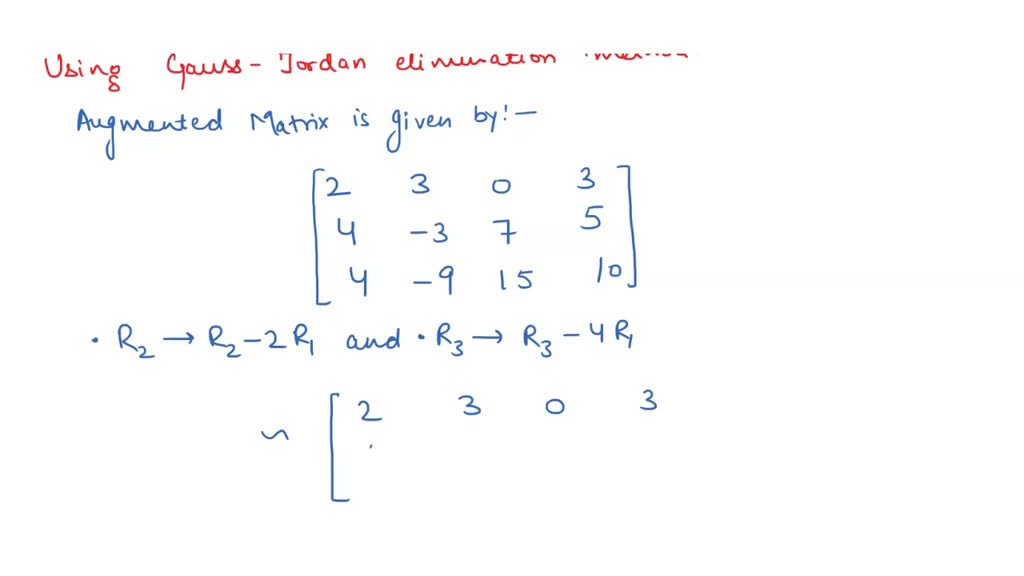 Using Gauss-Jordan elimination
Augmented Matrix is given by:-
2 3 0 3
4 -3 7 5
4 -9 15 10
• R2 → R2-2R1 and • R3 → R3-4R1
~ 2 3 0 3